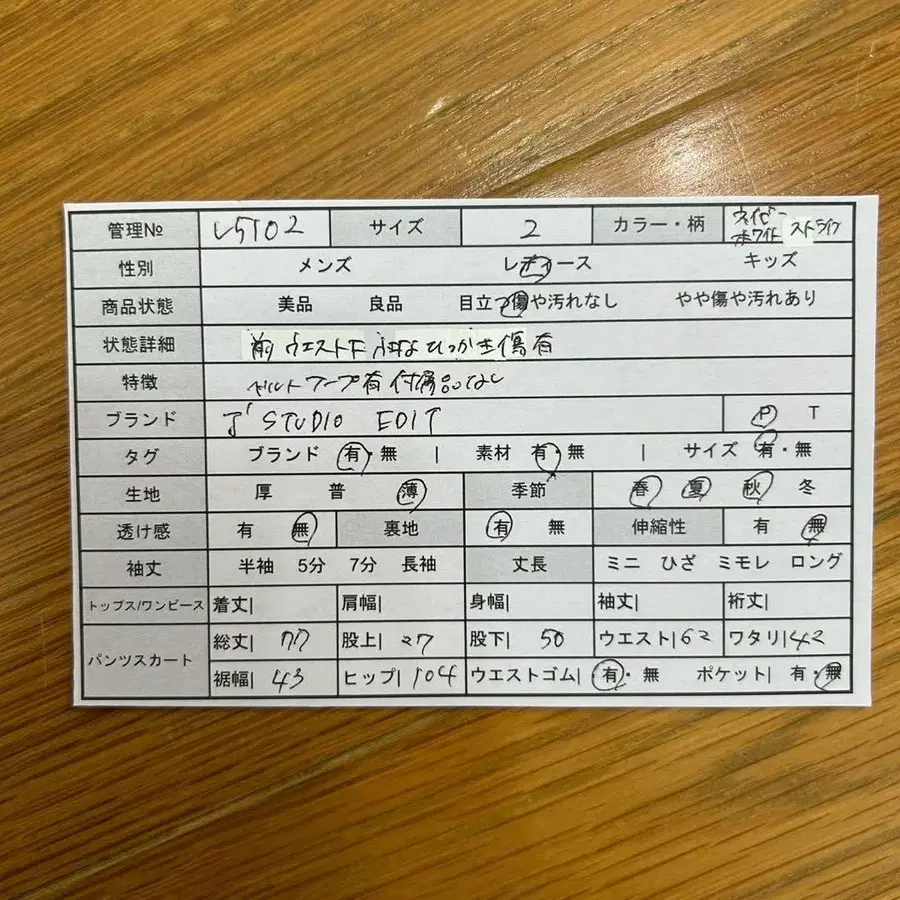 管理№ レ5102 サイズ 2 カラー・柄 ネイビー ホワイト ストライプ
性別 メンズ レディース キッズ
商品状態 美品 良品 目立つ傷や汚れなし やや傷や汚れあり
状態詳細 前ウエスト下 ひっかき傷有
特徴 ベルトループ有 付属品なし
ブランド J' STUDIO EDIT P T
タグ ブランド 有・無 | 素材 有・無 | サイズ 有・無
生地 厚 普 薄 季節 春 夏 秋 冬
透け感 有 無 裏地 有 無 伸縮性 有 無
袖丈 半袖 5分 7分 長袖 丈長 ミニ ひざ ミモレ ロング
トップス/ワンピース 着丈| 肩幅| 身幅| 袖丈| 裄丈|
パンツスカート 総丈| 77 股上| 27 股下| 50 ウエスト| 62 ワタリ| 42
裾幅| 43 ヒップ| 104 ウエストゴム| 有・無 ポケット| 有・無